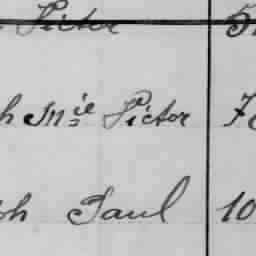 Pictor 5
h M^ie Pictor 7
ph Paul 10